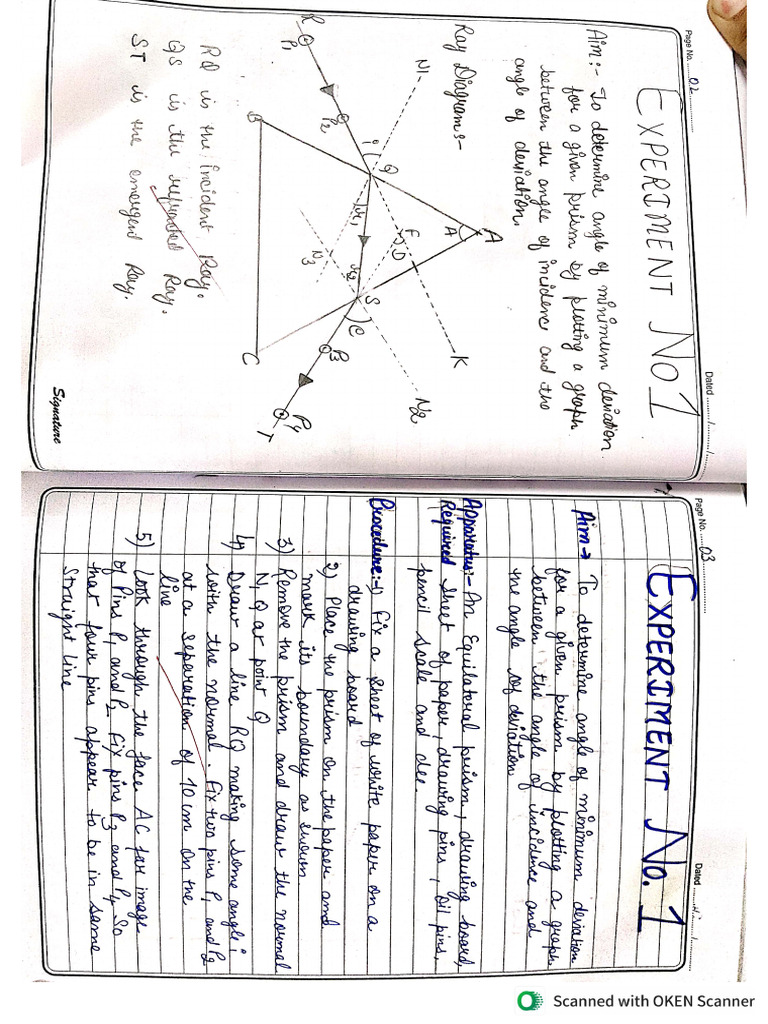 Page No. 02
Dated ......./......./.......
EXPERIMENT NO 1
Aim:- To determine angle of minimum deviation
for a given prism by plotting a graph
between the angle of incidence and the
angle of deviation.
Ray Diagram:-
A
A
N1
K
N2
F
D
i
Q
r1
r2
S
e
N3
R
P1
P2
P3
P4
T
B
C
RQ is the incident Ray.
QS is the refracted Ray.
ST is the emergent Ray.
Signature
Page No. 03
Dated
EXPERIMENT No. 1
Aim→ To determine angle of minimum deviation
for a given prism by plotting a graph
between the angle of incidence and
the angle of deviation
Apparatus:- An Equilateral prism, drawing board,
Required Sheet of paper, drawing pins, oil pins,
pencil scale and dee.
Procedure:-1) Fix a sheet of white paper on a
drawing board
2) Place the prism on the paper and
mark its boundary as shown
3) Remove the prism and draw the normal
N, Q at point Q
4) Draw a line RQ making some angle i
with the normal. Fix two pins P1 and P2
at a separation of 10 cm on the
line
5) Look through the face AC for image
of Pins P1 and P2 Fix pins P3 and P4 So
that four pins appear to be in same
straight line
Scanned with OKEN Scanner